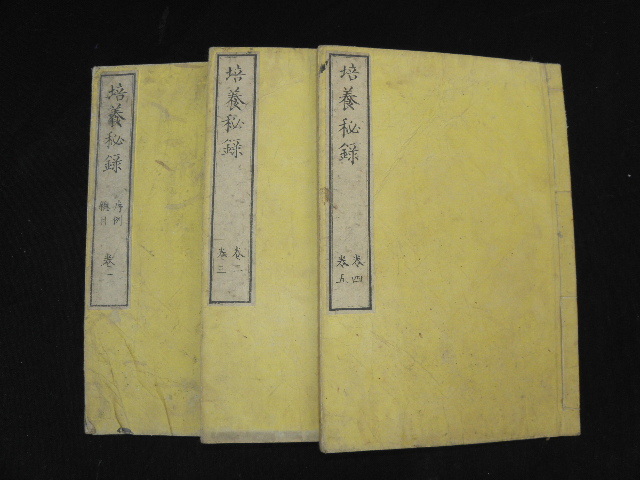 培養秘録
序例
總目
卷一
培養秘録
卷二
卷三
培養秘録
卷四
卷五